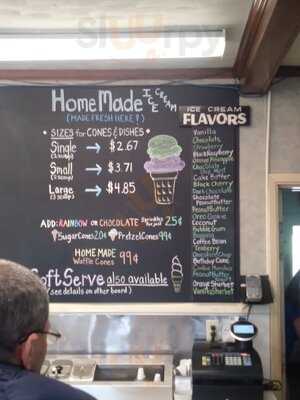 slurrpy
HomeMade ICE CREAM
(MADE FRESH HERE!)
• SIZES for CONES & DISHES •
Single → $2.67
Small → $3.71
(2 scoops)
Large → $4.85
(3 scoops)
ADD: RAINBOW OR CHOCOLATE Sprinkles 25¢
Sugar Cones 20¢ Pretzel Cones 99¢
HOME MADE
Waffle Cones 99¢
Soft Serve also available
(see details on other board)
ICE CREAM
FLAVORS
Vanilla
Chocolate
Strawberry
Black Raspberry
Orange Pineapple
Chocolate
Cake Batter
Black Cherry
Dark Chocolate
Chocolate
Peanut Butter
Peanut Butter
Oreo Cookie
Coconut
Bubble Gum
Coffee Bean
Teaberry
Birthday Cake
Orange Sherbet